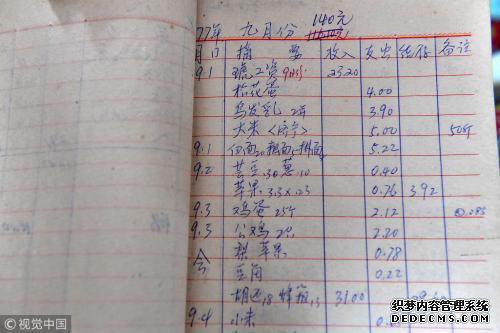 77年 九月份 140元
月日 摘要 收入 支出 结存 备注
9.1 工资 2320
松花蛋 4.00
乌发乳 2瓶 3.90
大米<济宁> 5.00 50斤
9.1 白面20 粗面 挂面 5.22
9.2 芸豆.30 葱.10 0.40
苹果 3.3×.23 0.76 392
9.3 鸡蛋 25个 2.12 @.085
9.3 公鸡 2只 2.20
梨 苹果 0.78
豆角 0.22
3100
9.4 小米
视觉中国
织梦内容管理系统
DEDECMS.COM